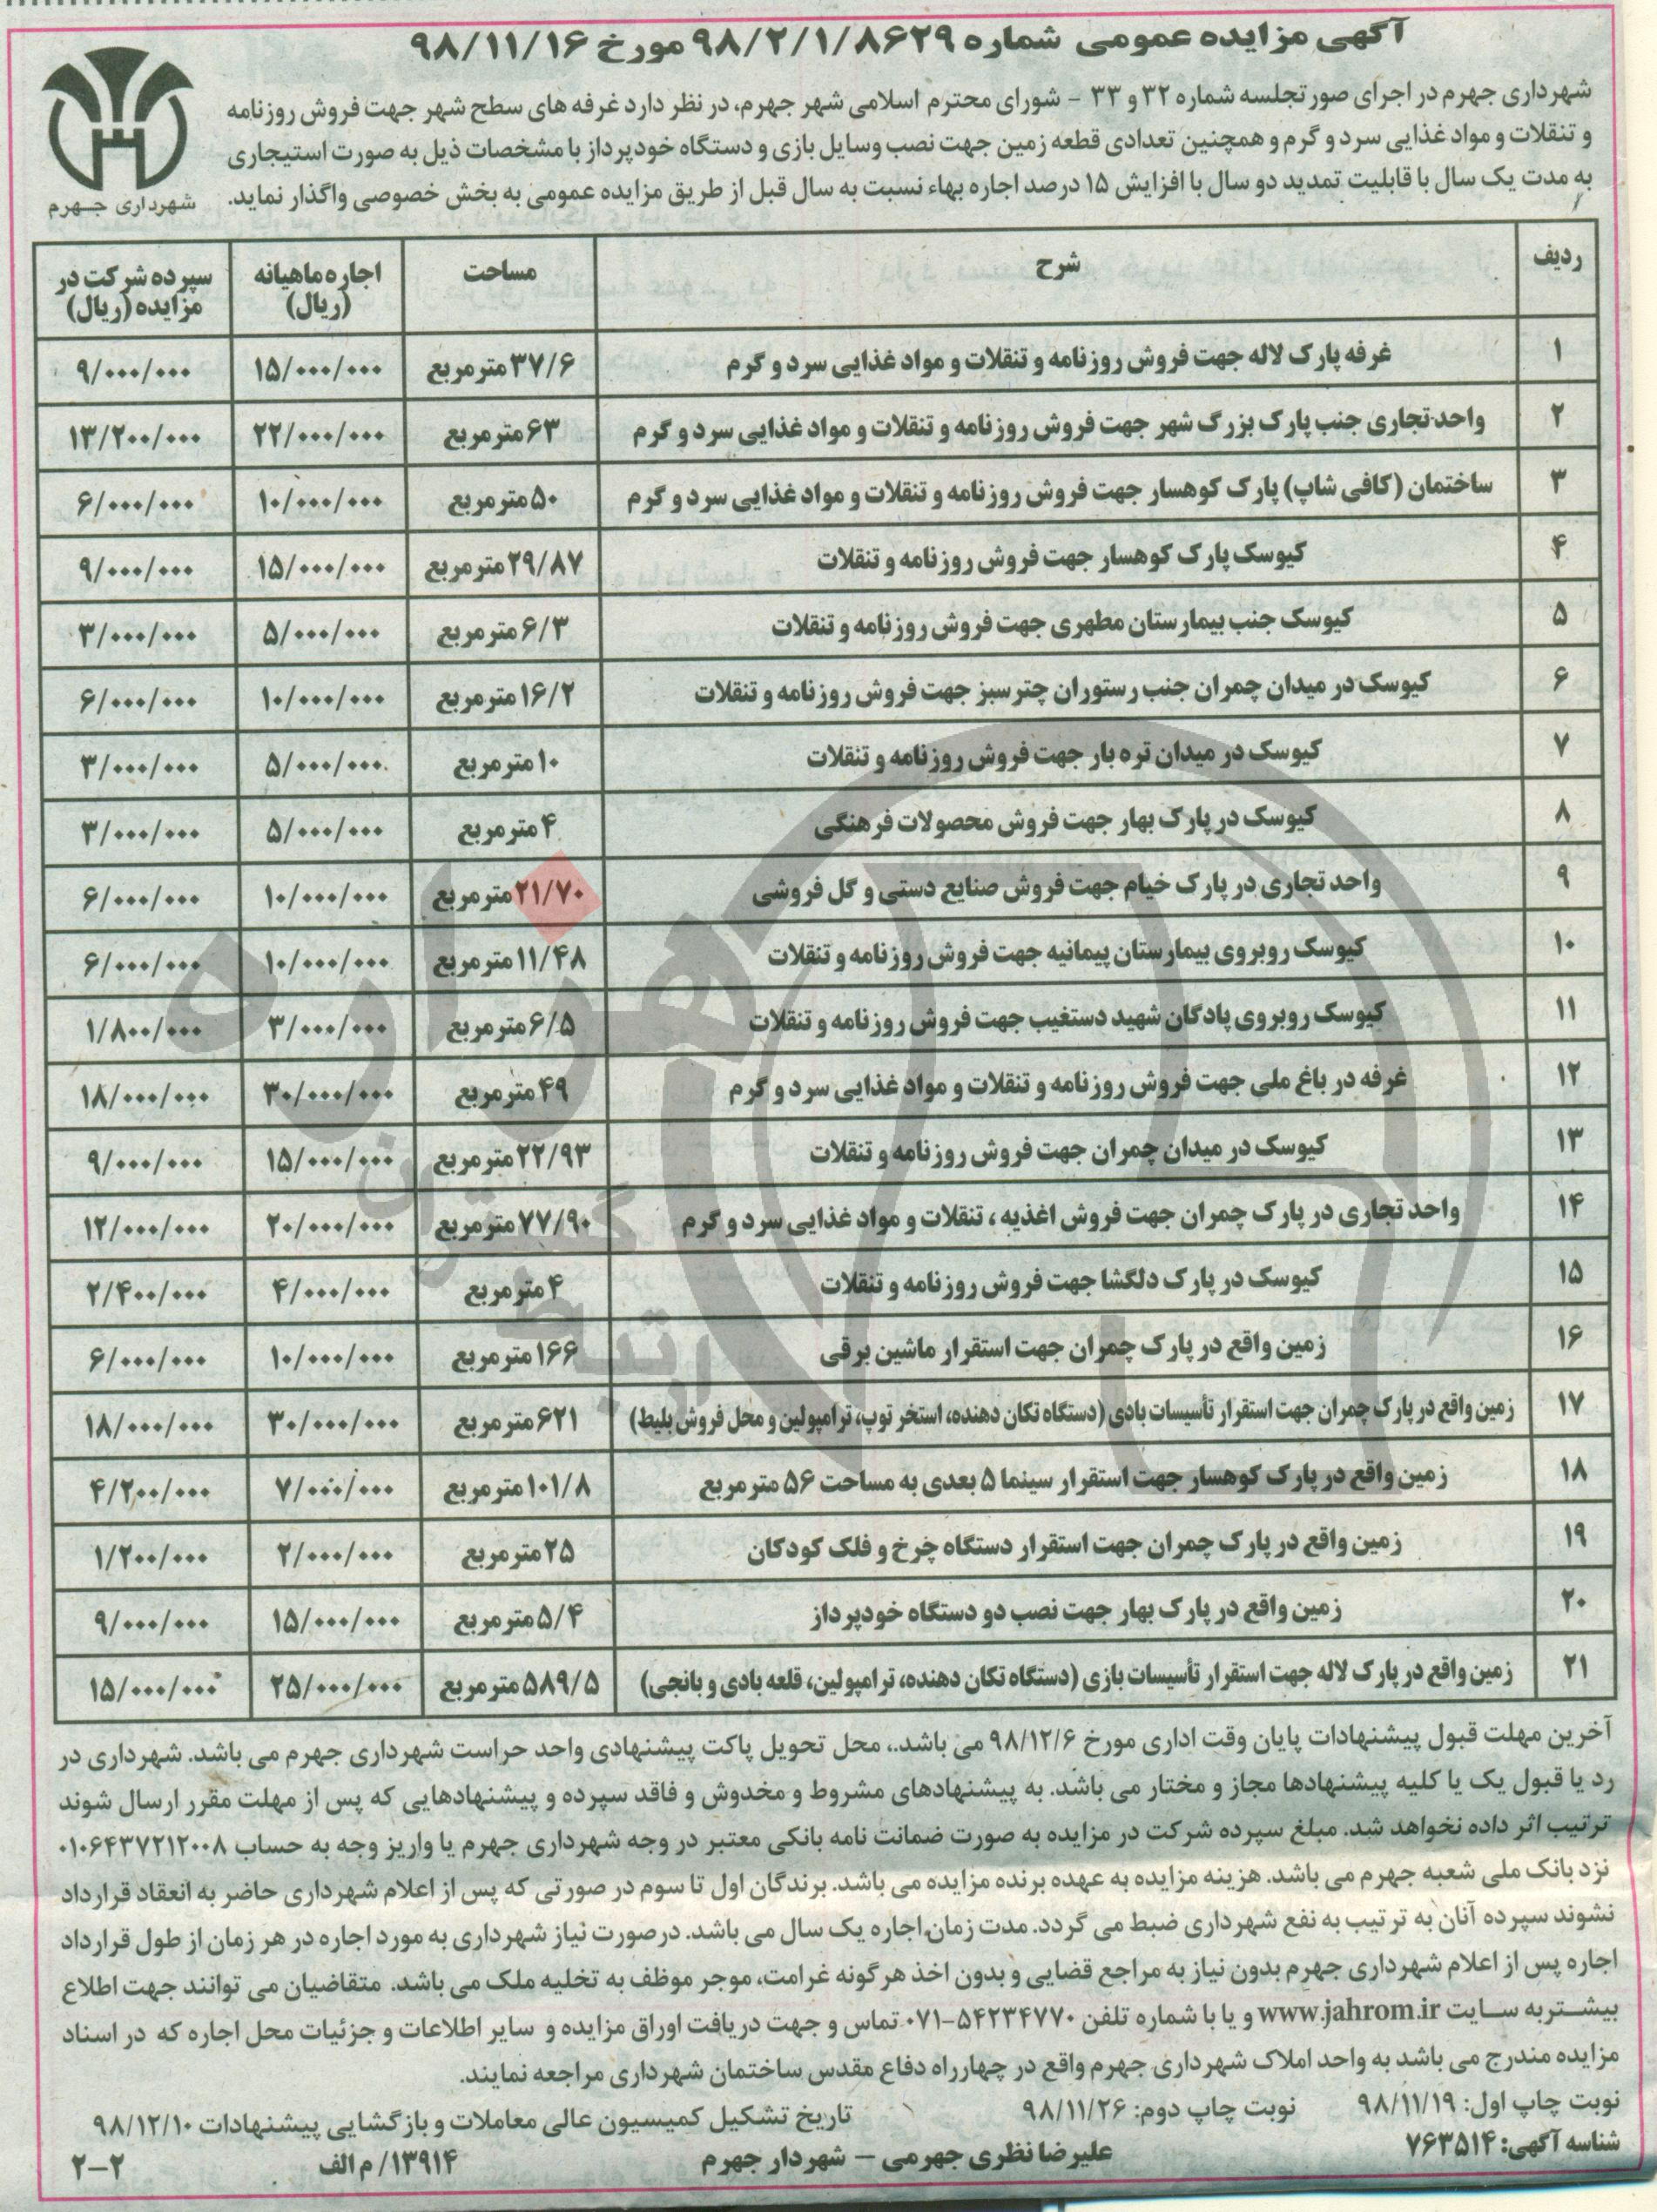 آگهی مزایده عمومی شماره ۹۸/۲/۱/۸۶۲۹ مورخ ۹۸/۱۱/۱۶
شهرداری جهرم در اجرای صورتجلسه شماره ۳۲ و ۳۳ - شورای محترم اسلامی شهر جهرم، در نظر دارد غرفه های سطح شهر جهت فروش روزنامه
و تنقلات و مواد غذایی سرد و گرم و همچنین تعدادی قطعه زمین جهت نصب وسایل بازی و دستگاه خودپرداز با مشخصات ذیل به صورت استیجاری
به مدت یک سال با قابلیت تمدید دو سال با افزایش ۱۵ درصد اجاره بهاء نسبت به سال قبل از طریق مزایده عمومی به بخش خصوصی واگذار نماید.
شهرداری جهرم
ردیف شرح مساحت اجاره ماهیانه (ریال) سپرده شرکت در مزایده (ریال)
۱ غرفه پارک لاله جهت فروش روزنامه و تنقلات و مواد غذایی سرد و گرم ۳۷/۶ مترمربع ۱۵/۰۰۰/۰۰۰ ۹/۰۰۰/۰۰۰
۲ واحد تجاری جنب پارک بزرگ شهر جهت فروش روزنامه و تنقلات و مواد غذایی سرد و گرم ۶۳ مترمربع ۲۲/۰۰۰/۰۰۰ ۱۳/۲۰۰/۰۰۰
۳ ساختمان (کافی شاپ) پارک کوهسار جهت فروش روزنامه و تنقلات و مواد غذایی سرد و گرم ۵۰ مترمربع ۱۰/۰۰۰/۰۰۰ ۶/۰۰۰/۰۰۰
۴ کیوسک پارک کوهسار جهت فروش روزنامه و تنقلات ۲۹/۸۷ مترمربع ۱۵/۰۰۰/۰۰۰ ۹/۰۰۰/۰۰۰
۵ کیوسک جنب بیمارستان مطهری جهت فروش روزنامه و تنقلات ۶/۳ مترمربع ۵/۰۰۰/۰۰۰ ۳/۰۰۰/۰۰۰
۶ کیوسک در میدان چمران جنب رستوران چترسبز جهت فروش روزنامه و تنقلات ۱۶/۲ مترمربع ۱۰/۰۰۰/۰۰۰ ۶/۰۰۰/۰۰۰
۷ کیوسک در میدان تره بار جهت فروش روزنامه و تنقلات ۱۰ مترمربع ۵/۰۰۰/۰۰۰ ۳/۰۰۰/۰۰۰
۸ کیوسک در پارک بهار جهت فروش محصولات فرهنگی ۴ مترمربع ۵/۰۰۰/۰۰۰ ۳/۰۰۰/۰۰۰
۹ واحد تجاری در پارک خیام جهت فروش صنایع دستی و گل فروشی ۲۱/۷۰ مترمربع ۱۰/۰۰۰/۰۰۰ ۶/۰۰۰/۰۰۰
۱۰ کیوسک روبروی بیمارستان پیمانیه جهت فروش روزنامه و تنقلات ۱۱/۴۸ مترمربع ۱۰/۰۰۰/۰۰۰ ۶/۰۰۰/۰۰۰
۱۱ کیوسک روبروی پادگان شهید دستغیب جهت فروش روزنامه و تنقلات ۶/۵ مترمربع ۳/۰۰۰/۰۰۰ ۱/۸۰۰/۰۰۰
۱۲ غرفه در باغ ملی جهت فروش روزنامه و تنقلات و مواد غذایی سرد و گرم ۴۹ مترمربع ۳۰/۰۰۰/۰۰۰ ۱۸/۰۰۰/۰۰۰
۱۳ کیوسک در میدان چمران جهت فروش روزنامه و تنقلات ۲۲/۹۳ مترمربع ۱۵/۰۰۰/۰۰۰ ۹/۰۰۰/۰۰۰
۱۴ واحد تجاری در پارک چمران جهت فروش اغذیه ، تنقلات و مواد غذایی سرد و گرم ۷۷/۹۰ مترمربع ۲۰/۰۰۰/۰۰۰ ۱۲/۰۰۰/۰۰۰
۱۵ کیوسک در پارک دلگشا جهت فروش روزنامه و تنقلات ۴ مترمربع ۴/۰۰۰/۰۰۰ ۲/۴۰۰/۰۰۰
۱۶ زمین واقع در پارک چمران جهت استقرار ماشین برقی ۱۶۶ مترمربع ۱۰/۰۰۰/۰۰۰ ۶/۰۰۰/۰۰۰
۱۷ زمین واقع در پارک چمران جهت استقرار تأسیسات بادی (دستگاه تکان دهنده، استخر توپ، ترامپولین و محل فروش بلیط) ۶۲۱ مترمربع ۳۰/۰۰۰/۰۰۰ ۱۸/۰۰۰/۰۰۰
۱۸ زمین واقع در پارک کوهسار جهت استقرار سینما ۵ بعدی به مساحت ۵۶ مترمربع ۱۰۱/۸ مترمربع ۷/۰۰۰/۰۰۰ ۴/۲۰۰/۰۰۰
۱۹ زمین واقع در پارک چمران جهت استقرار دستگاه چرخ و فلک کودکان ۲۵ مترمربع ۲/۰۰۰/۰۰۰ ۱/۲۰۰/۰۰۰
۲۰ زمین واقع در پارک بهار جهت نصب دو دستگاه خودپرداز ۵/۴ مترمربع ۱۵/۰۰۰/۰۰۰ ۹/۰۰۰/۰۰۰
۲۱ زمین واقع در پارک لاله جهت استقرار تأسیسات بازی (دستگاه تکان دهنده، ترامپولین، قلعه بادی و بانجی) ۵۸۹/۵ مترمربع ۲۵/۰۰۰/۰۰۰ ۱۵/۰۰۰/۰۰۰
آخرین مهلت قبول پیشنهادات پایان وقت اداری مورخ ۹۸/۱۲/۶ می باشد.، محل تحویل پاکت پیشنهادی واحد حراست شهرداری جهرم می باشد. شهرداری در
رد یا قبول یک یا کلیه پیشنهادها مجاز و مختار می باشد. به پیشنهادهای مشروط و مخدوش و فاقد سپرده و پیشنهادهایی که پس از مهلت مقرر ارسال شوند
ترتیب اثر داده نخواهد شد. مبلغ سپرده شرکت در مزایده به صورت ضمانت نامه بانکی معتبر در وجه شهرداری جهرم یا واریز وجه به حساب ۰۱۰۶۴۳۷۲۱۲۰۰۸
نزد بانک ملی شعبه جهرم می باشد. هزینه مزایده به عهده برنده مزایده می باشد. برندگان اول تا سوم در صورتی که پس از اعلام شهرداری حاضر به انعقاد قرارداد
نشوند سپرده آنان به ترتیب به نفع شهرداری ضبط می گردد. مدت زمان اجاره یک سال می باشد. درصورت نیاز شهرداری به مورد اجاره در هر زمان از طول قرارداد
اجاره پس از اعلام شهرداری جهرم بدون نیاز به مراجع قضایی و بدون اخذ هرگونه غرامت، موجر موظف به تخلیه ملک می باشد. متقاضیان می توانند جهت اطلاع
بیشتر به سایت www.jahrom.ir و یا با شماره تلفن ۵۴۲۳۴۷۷۰-۰۷۱ تماس و جهت دریافت اوراق مزایده و سایر اطلاعات و جزئیات محل اجاره که در اسناد
مزایده مندرج می باشد به واحد املاک شهرداری جهرم واقع در چهارراه دفاع مقدس ساختمان شهرداری مراجعه نمایند.
نوبت چاپ اول: ۹۸/۱۱/۱۹ نوبت چاپ دوم: ۹۸/۱۱/۲۶ تاریخ تشکیل کمیسیون عالی معاملات و بازگشایی پیشنهادات ۹۸/۱۲/۱۰
شناسه آگهی: ۷۶۳۵۱۴ علیرضا نظری جهرمی - شهردار جهرم ۱۳۹۱۴/ م الف ۲-۲